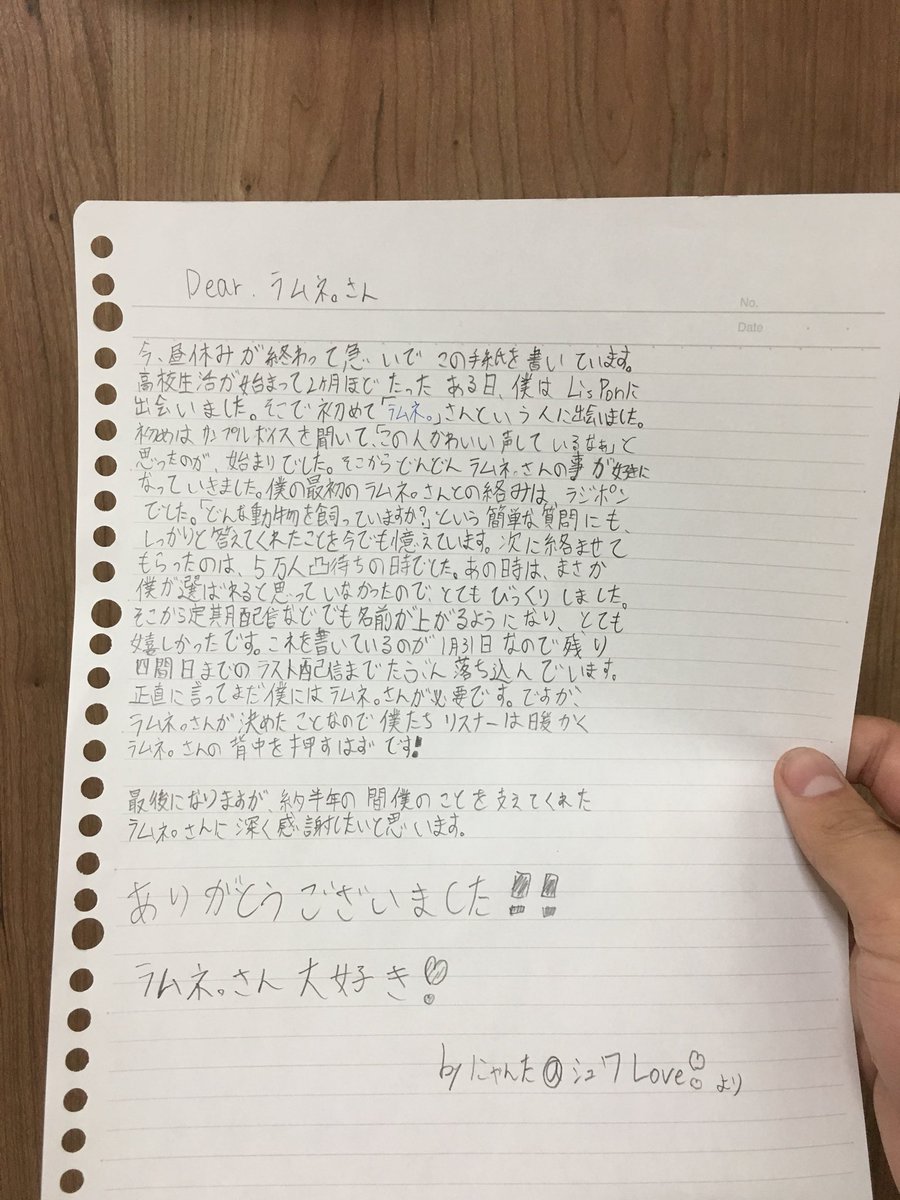 Dear. ラムネ。さん
No.
Date
今、昼休みが終わって急いでこの手紙を書いています。
高校生活が始まって2ヶ月ほどたったある日、僕はLisPonに
出会いました。そこで初めて「ラムネ。」さんという人に出会いました。
初めはサンプルボイスを聞いて、「この人かわいい声しているなぁ」と
思ったのが、始まりでした。そこからどんどんラムネ。さんの事が好きに
なっていきました。僕の最初のラムネ。さんとの絡みは、ラジポン
でした。「どんな動物を飼っていますか?」という簡単な質問にも、
しっかりと答えてくれたことを今でも憶えています。次に絡ませて
もらったのは、5万人凸待ちの日時でした。あの時は、まさか
僕が選ばれると思っていなかったので、とてもびっくりしました。
そこから定期配信などでも名前が上がるようになり、とても
嬉しかったです。これを書いているのが1月31日なので残り
四間日までのラスト配信までたぶん落ち込んでいます。
正直に言ってまだ僕にはラムネ。さんが必要です。ですが、
ラムネ。さんが決めたことなので僕たちリスナーは暖かく
ラムネ。さんの背中を押すはずです!
最後になりますが、約半年の間僕のことを支えてくれた
ラムネ。さんに深く感謝したいと思います。
ありがとうございました!!
ラムネ。さん大好き!
byにゃんた@シュワLove!より